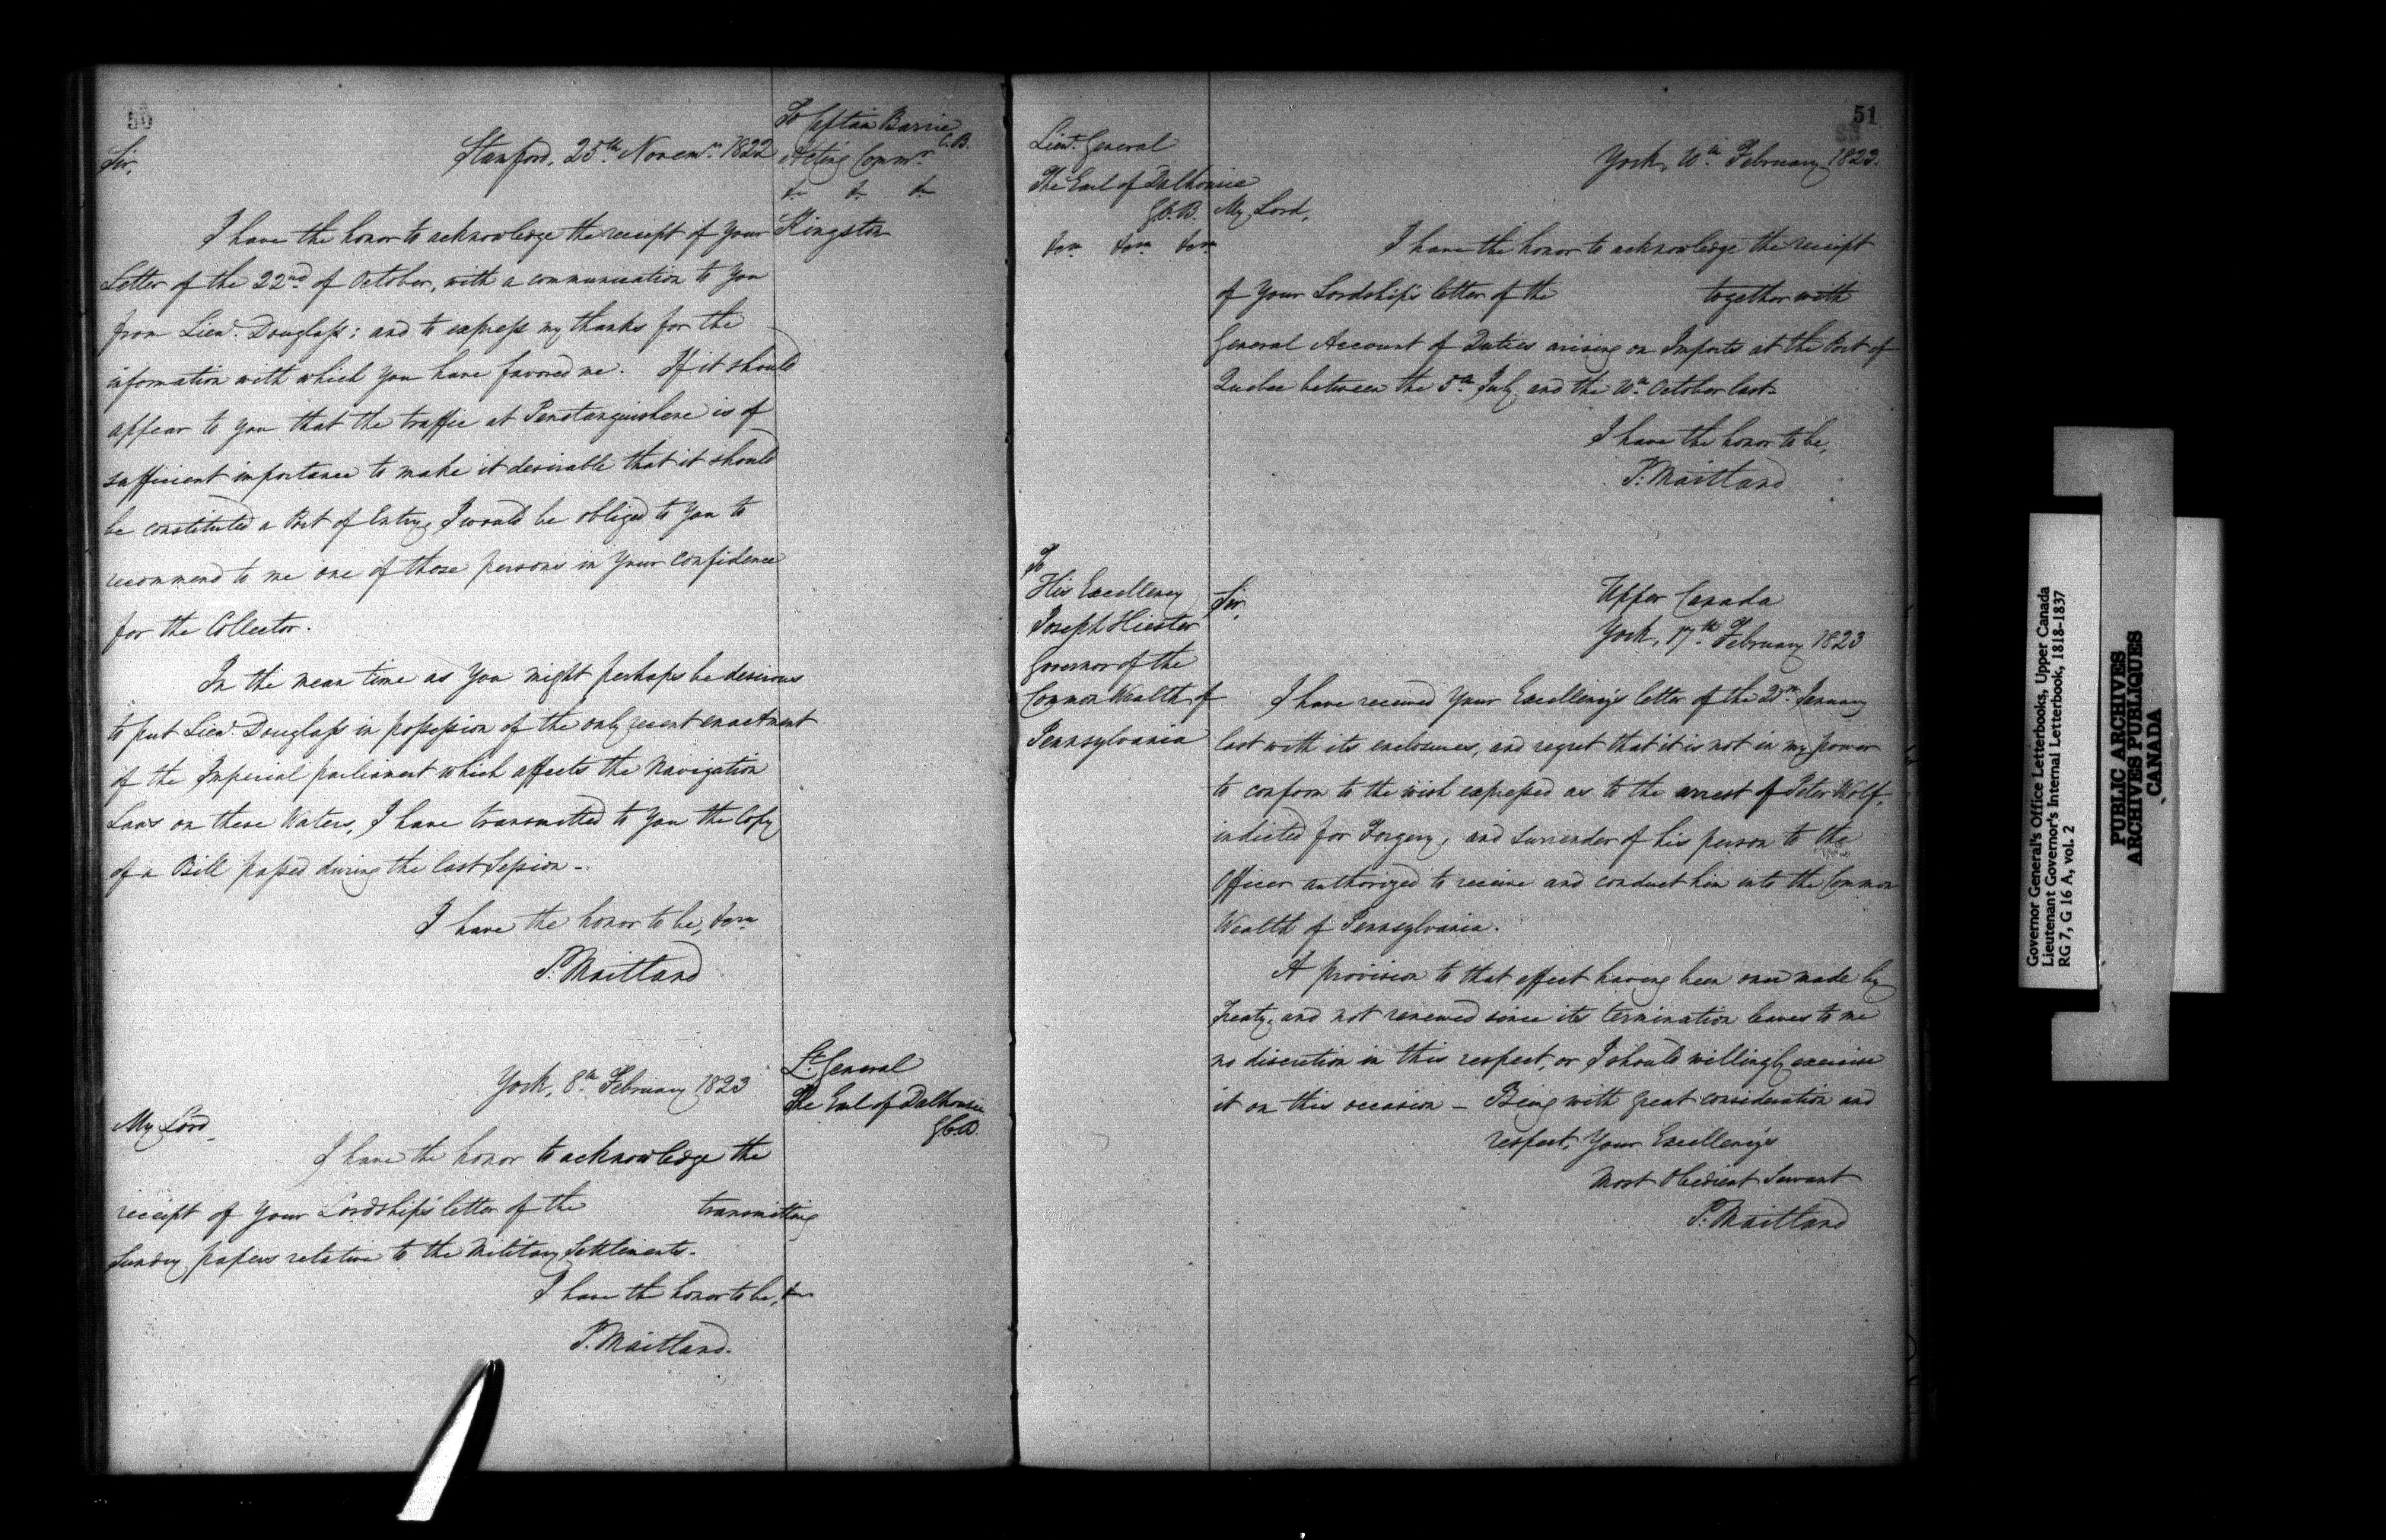 50
To Captain Barrie
C.B.
Acting Commr.
&c &c &c
Kingston
Stamford, 25th Novemr. 1822
Sir,
I have the honor to acknowledge the receipt of Your
Letter of the 22nd of October, with a communication to you
from Lieut. Douglass; and to express my thanks for the
information with which you have favored me. If it should
appear to you that the traffic at Penetanguishene is of
sufficient importance to make it desirable that it should
be constituted a Port of Entry, I would be obliged to you to
recommend to me one of those persons in Your confidence
for the Collector.
In the mean time as You might perhaps be desirous
to put Lieut. Douglass in possession of the only recent enactment
of the Imperial parliament which affects the Navigation
Laws on these Waters, I have transmitted to You the Copy
of a Bill passed during the last Session -
I have the honor to be, &ca
P. Maitland
Lt. General
The Earl of Dalhousie
G.C.B.
York, 8th February 1823
My Lord
I have the honor to acknowledge the
receipt of Your Lordship's letter of the transmitting
Sundry papers relative to the Military Settlements.
I have the honor to be, &c
P. Maitland.
51
Lieut. General
The Earl of Dalhousie
G.C.B.
&ca &ca &ca
York, 10th February 1823.
My Lord,
I have the honor to acknowledge the receipt
of Your Lordship's letter of the together with
General Account of Duties arising on Imports at the Port of
Quebec between the 5th July and the 10th October last-
I have the honor to be,
P. Maitland
To
His Excellency
Joseph Hiester
Governor of the
Common Wealth of
Pennsylvania
Upper Canada
York, 17th February 1823
Sir,
I have received Your Excellency's letter of the January
last with its enclosures, and regret that it is not in my power
to conform to the wish expressed as to the arrest of Peter Wolf,
indicted for Forgery, and surrender of his person to the
Officer authorized to receive and conduct him into the Common
Wealth of Pennsylvania.
A provision to that effect having been once made by
Treaty, and not renewed since its termination leaves to me
no discretion in this respect, or I should willingly exercise
it on this occasion - Being with great consideration and
respect, Your Excellency's
Most Obedient Servant
P. Maitland
Governor General's Office Letterbooks, Upper Canada
Lieutenant Governor's Internal Letterbook, 1818-1837
RG 7, G 16 A, vol. 2
PUBLIC ARCHIVES
ARCHIVES PUBLIQUES
CANADA